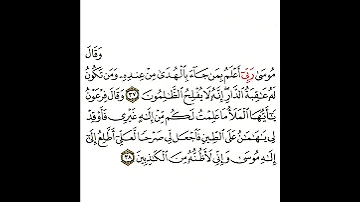 وَقَالَ
مُوسَىٰ رَبِّيٓ أَعۡلَمُ بِمَن جَآءَ بِٱلۡهُدَىٰ مِنۡ عِندِهِۦ وَمَن تَكُونُ
لَهُۥ عَٰقِبَةُ ٱلدَّارِۚ إِنَّهُۥ لَا يُفۡلِحُ ٱلظَّٰلِمُونَ ٣٧ وَقَالَ فِرۡعَوۡنُ
يَٰٓأَيُّهَا ٱلۡمَلَأُ مَا عَلِمۡتُ لَكُم مِّنۡ إِلَٰهٍ غَيۡرِي فَأَوۡقِدۡ
لِي يَٰهَٰمَٰنُ عَلَى ٱلطِّينِ فَٱجۡعَل لِّي صَرۡحٗا لَّعَلِّيٓ أَطَّلِعُ إِلَىٰٓ
إِلَٰهِ مُوسَىٰ وَإِنِّي لَأَظُنُّهُۥ مِنَ ٱلۡكَٰذِبِينَ ٣٨